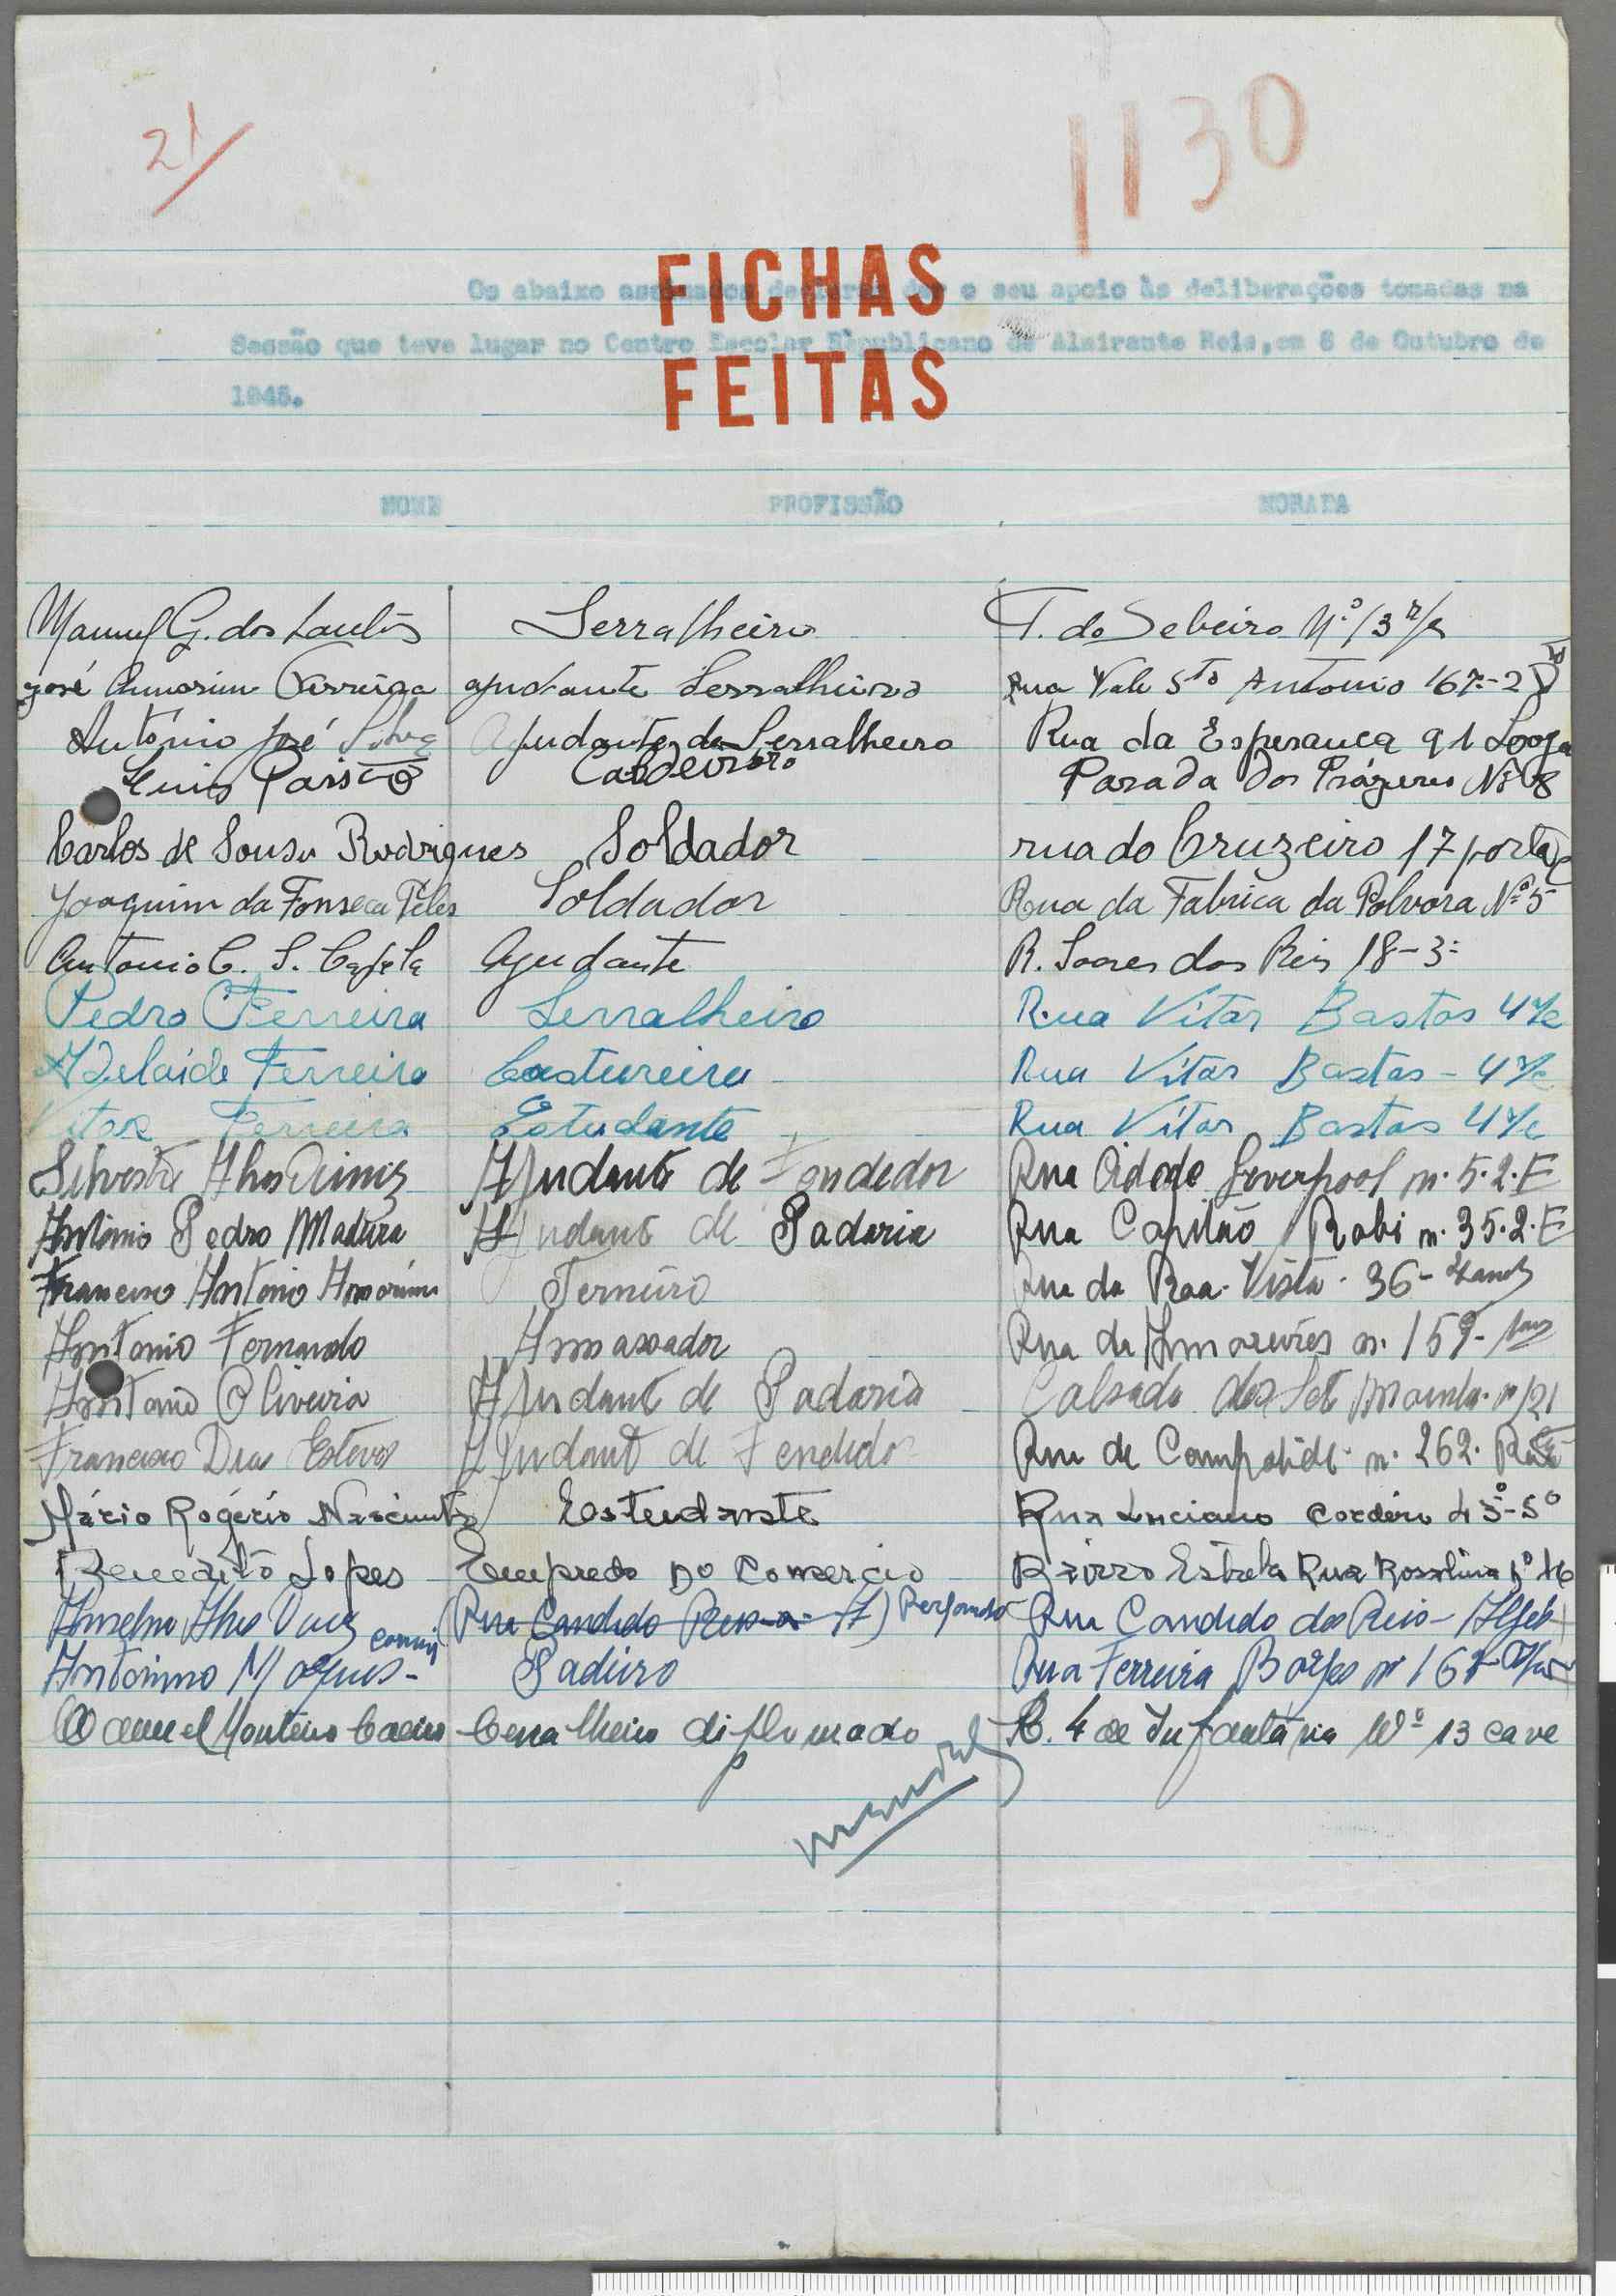 21
1130
FICHAS
Os abaixo assinados declaram dar o seu apoio às deliberações tomadas na
Sessão que teve lugar no Centro Escolar Républicano de Almirante Reis, em 8 de Outubro de
FEITAS
1945.
NOME PROFISSÃO MORADA
Manuel G. dos Santos Serralheiro T. do Sebeiro N.º 13 r/c
José Amorim Ferreira ajudante Serralheiro Rua Vale Sto Antonio 167-2
António José Silva Ajudante de Serralheiro Rua da Esperança 91 Loja
Luis Caldeireiro Parada dos Prázeres Nº 8
Carlos de Sousa Rodrigues Soldador rua do Cruzeiro 17 porta
Joaquim da Fonseca Teles Soldador Rua da Fabrica da Polvora Nº 5
Antonio C. S. Ajudante R. Soares dos Reis 18-3º
Pedro Ferreira Serralheiro Rua Vitor Bastos 4 r/c
Adelaide Ferreira Costureira Rua Vítor Bastos - 4 r/c
Vitor Ferreira Estudante Rua Vítor Bastos 4 r/c
Silvestre Diniz Ajudante de Rua Cidade Liverpool n. 5.2.E
António Pedro Madura Ajudant de Padaria Rua Capitão Robi n. 35.2.E
Francisco Antonio Amorim Forneiro Rua da Boa. Vista. 36-
Antonio Fernando Amassador Rua de n. 159-
Antonio Oliveira Ajudant de Padaria Calsada dos Set n 121
Francisco Dias Esteves Ajudant de Rua de Campolide. n. 262.
Mário Rogério Nascimento Estudante Rua Luciano Cordeiro 43-5º
Benedito Lopes Empredo Do Comercio Bairro Estrela Rua Rosalina
Anselmo Vaz Rua Candido Reis Rua Candido dos Reis -
Antonino Padeiro Rua Ferreira Borges nº 167
Manuel Monteiro diplomado R. 4 de Infantaria Nº 13 cave